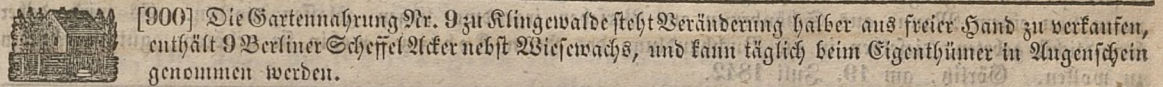 [900] Die Gartennahrung Nr. 9 zu Klingewalde steht Veränderung halber aus freier Hand zu verkaufen,
enthält 9 Berliner Scheffel Acker nebst Wiesewachs, und kann täglich beim Eigenthümer in Augenschein
genommen werden.